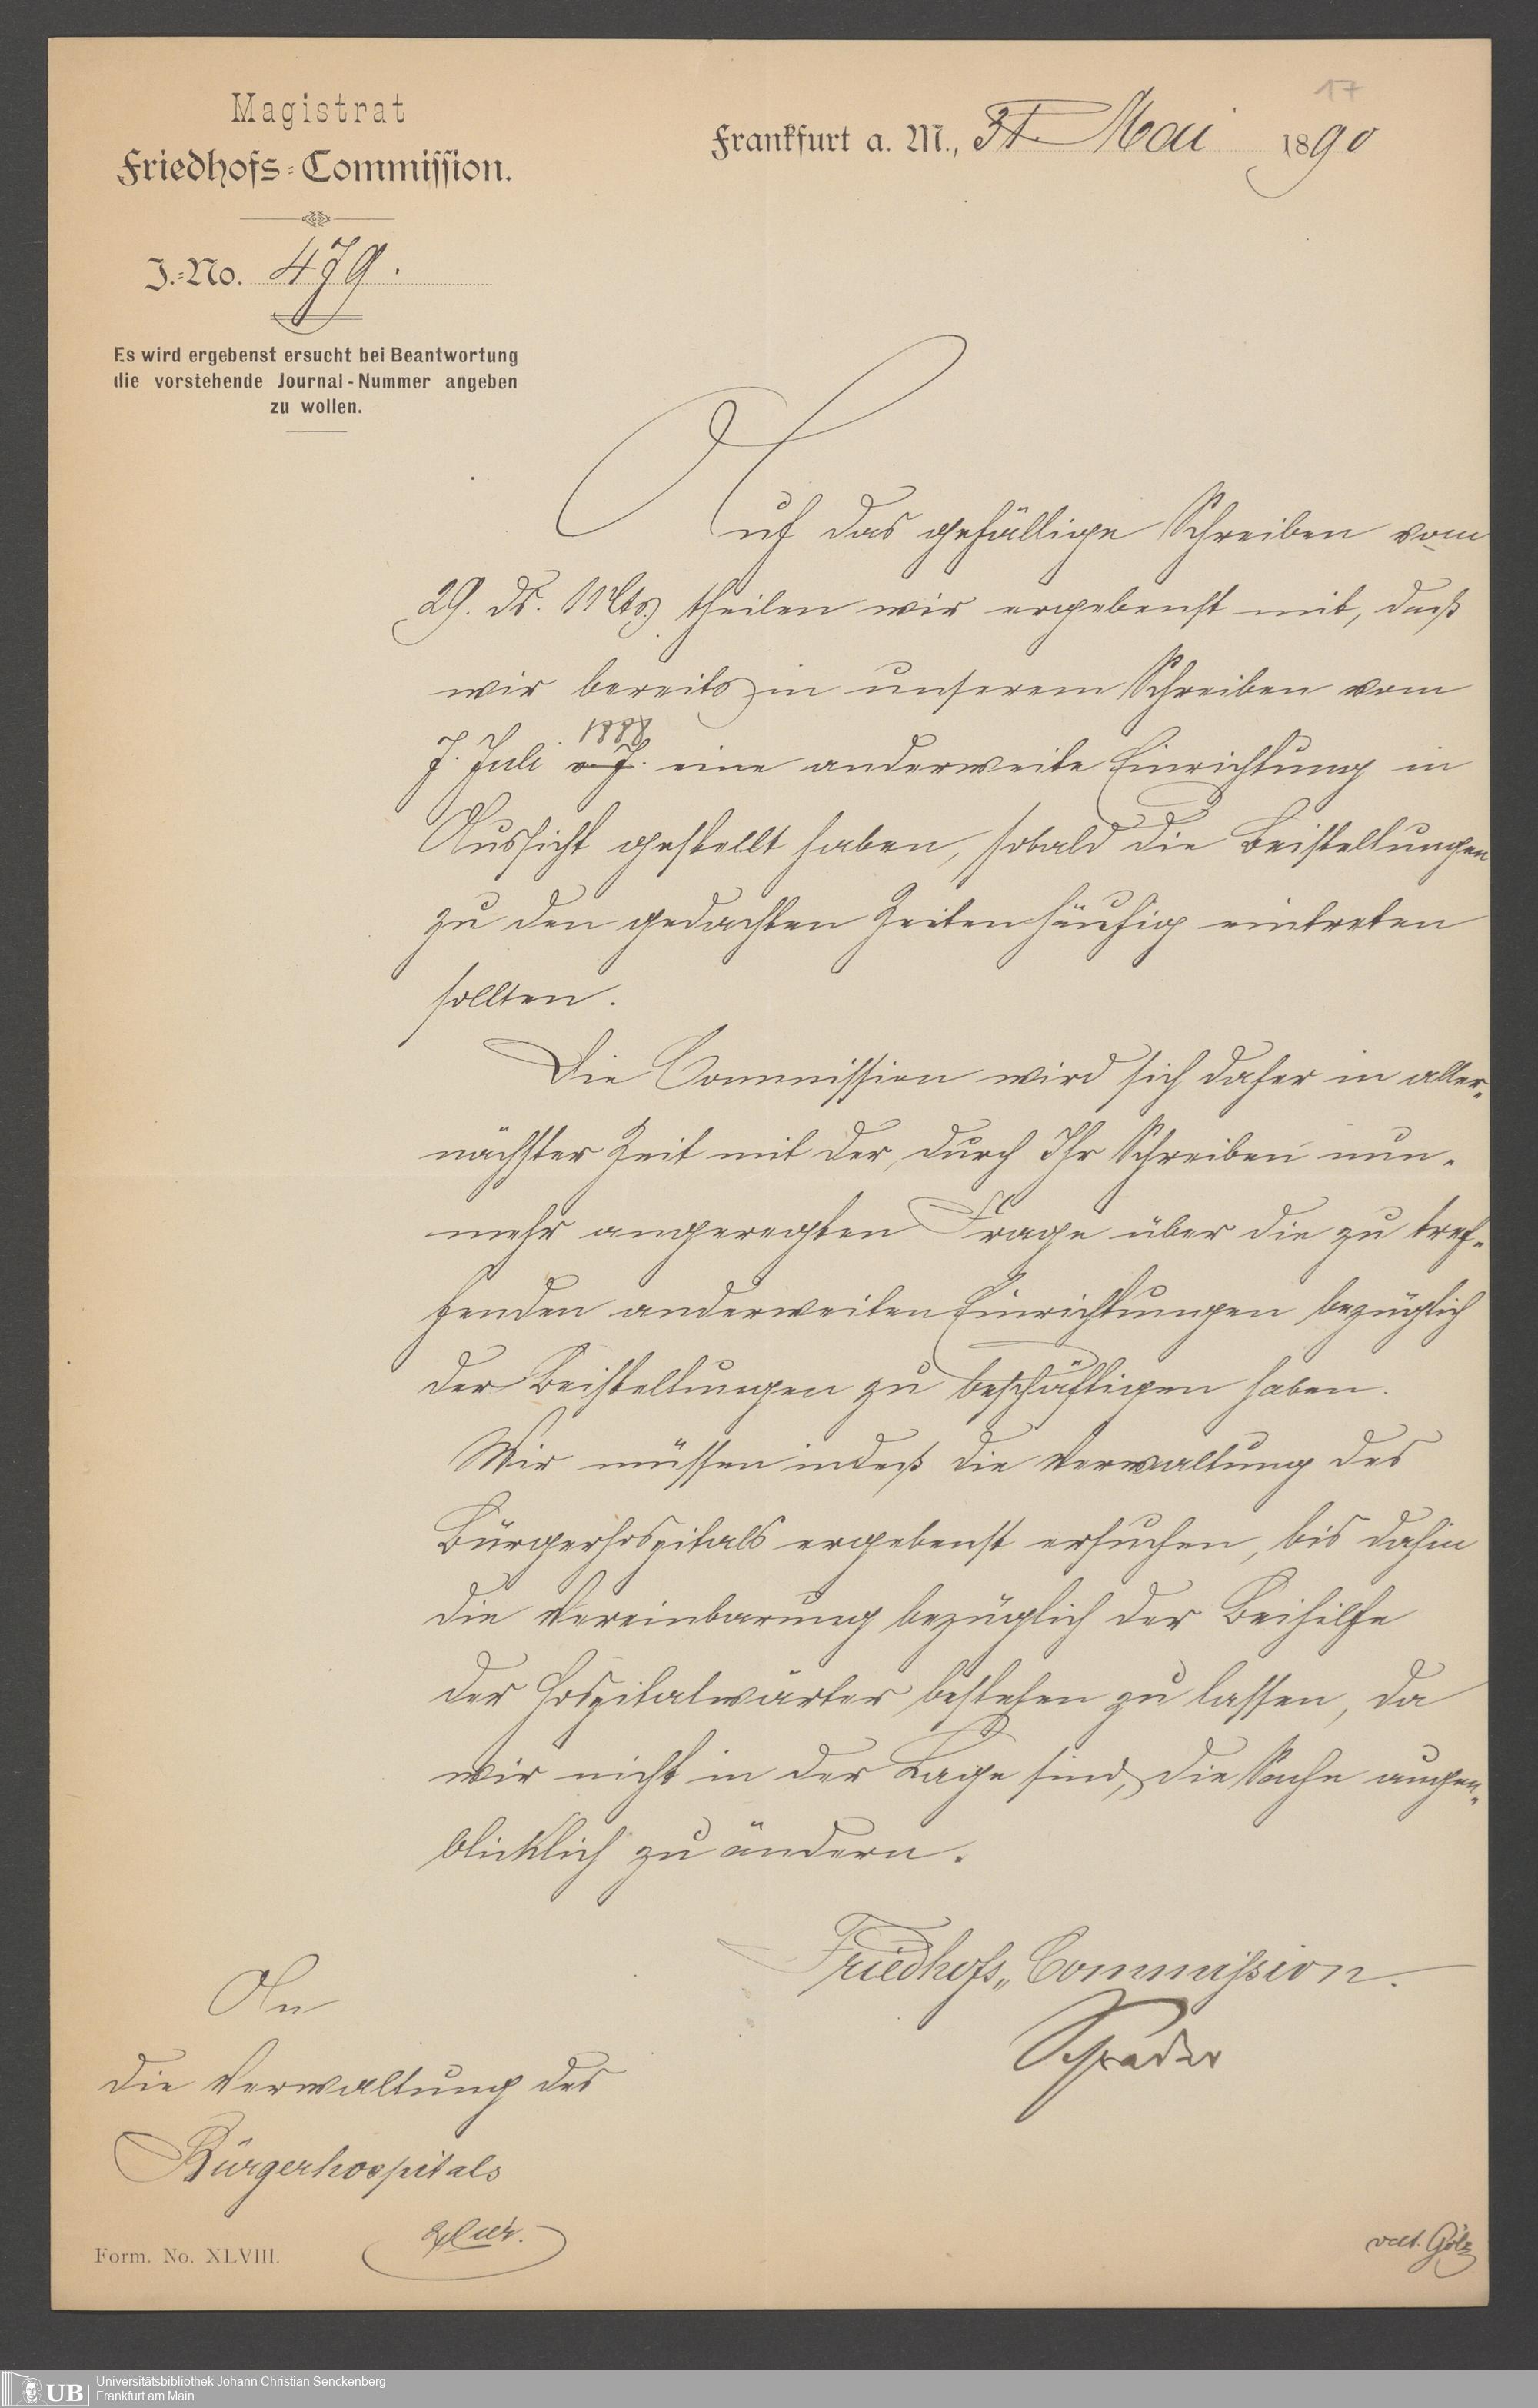 17
Magistrat
Friedhofs-Commission.
Frankfurt a. M., 31. Mai 1890
J.-No. 479.
Es wird ergebenst ersucht bei Beantwortung
die vorstehende Journal-Nummer angeben
zu wollen.
Auf das gefällige Schreiben vom
29. ds. Mts. theilen wir ergebenst mit, daß
wir bereits in unserem Schreiben vom
1888
7. Juli v. J. eine anderweite Einrichtung in
Aussicht gestellt haben, sobald die Beistellungen
zu den gedachten Zeiten häufig eintreten
sollten.
Die Commission wird sich daher in aller-
nächster Zeit mit der, durch Ihr Schreiben nun-
mehr angeregten Frage über die zu tref-
fenden anderweiten Einrichtungen bezüglich
der Beistellungen zu beschäftigen haben.
Wir müssen indeß die Verwaltung des
Bürgerhospitals ergebenst ersuchen, bis dahin
die Vereinbarung bezüglich der Beihilfe
der Hospitalwärter bestehen zu lassen, da
wir nicht in der Lage sind, die Sache augen-
blicklich zu ändern.
Friedhofs-Commission.
An
die Verwaltung des
Bürgerhospitals
hier.
Form. No. XLVIII.
vdt. Gölz
UB
Universitätsbibliothek Johann Christian Senckenberg
Frankfurt am Main